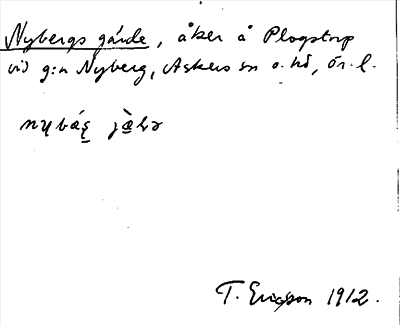 Nybergs gärde, åker å Plogstorp
vid g:a Nyberg, Askers sn o. hd, Ör. l.
T. Ericsson 1912.